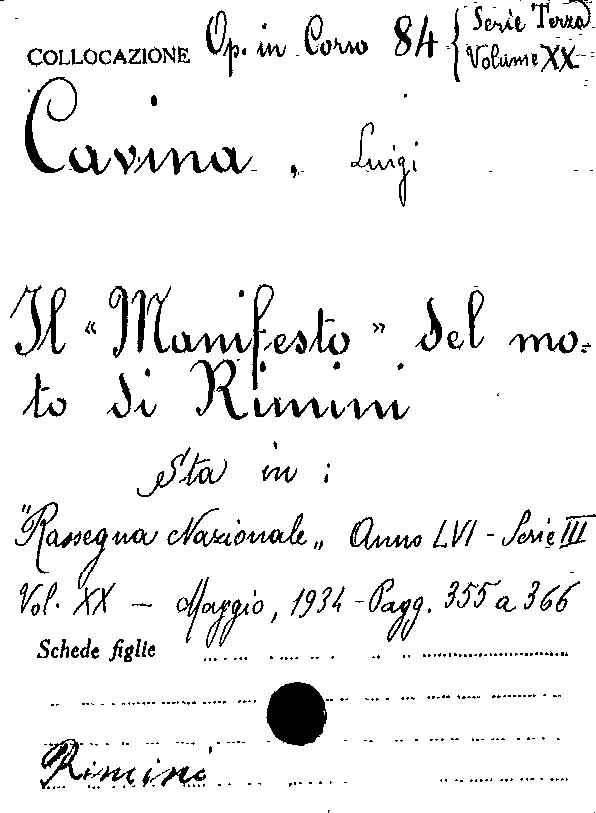 COLLOCAZIONE Op. in Corso 84 { Serie Terza
Volume XX
Cavina, Luigi
Il "Manifesto" del mo-
to di Rimini
Sta in:
"Rassegna Nazionale" Anno LVI - Serie III
Vol. XX - Maggio, 1934 - Pagg. 355 a 366
Schede figlie
Rimini